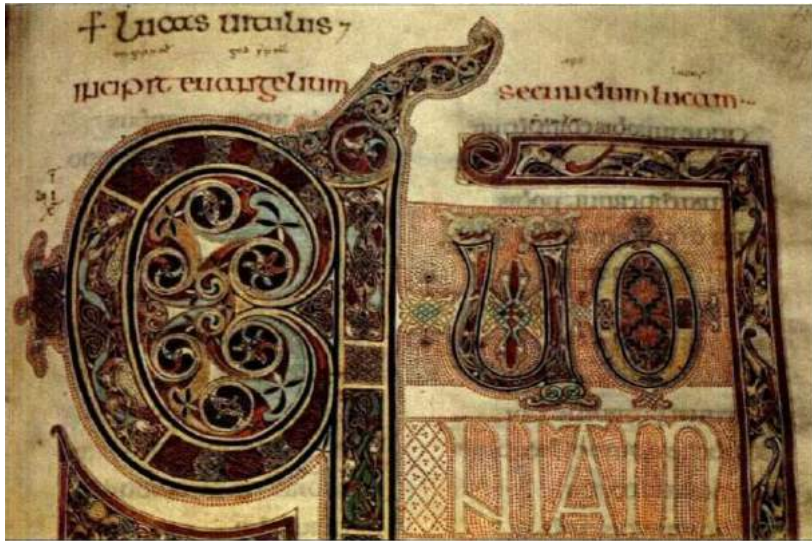 + Lucas uitulus
incipit euangelium secundum lucam
QUO
NIAM